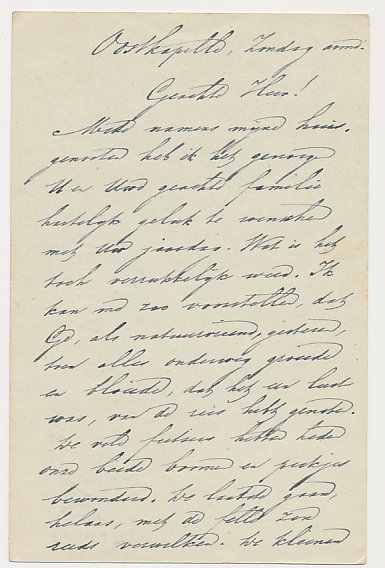 Oostkapelle, Zondag avond.
Geachte Heer!
Mede namens mijne huis-
genooten heb ik het genoegen
U en Uwe geachte familie
hartelijk geluk te wenschen
met Uw jaardag. Wat is het
toch verrukkelijk weer. Ik
kan me zoo voorstellen, dat
U, als natuurvriend, gisteren,
toen alles onderweg groeide
en bloeide, dat het een lust
was, van de reis hebt genoten.
De vele fietsers hebben heden
onze beide boomen en perkjes
bewonderd. De laatste gaan,
helaas, met de felle zon
reeds verwelken. De kleinen